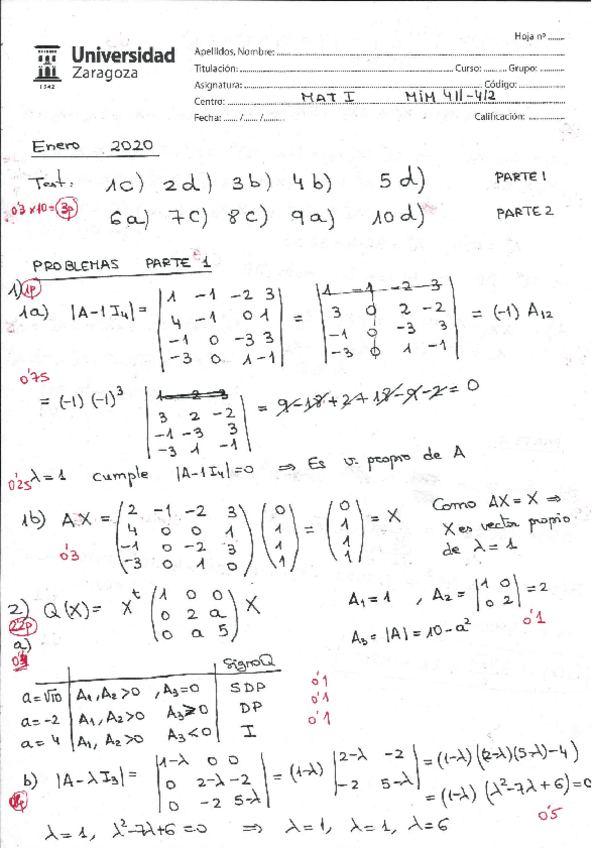 Hoja nº ........
Universidad
Zaragoza
1542
Apellidos, Nombre: ........
Titulación: ........ Curso: ........ Grupo: ........
Asignatura: ........ Código: ........
Centro: ........ MAT I MIM 411-412
Fecha: ....../....../...... Calificación: ........
Enero 2020
Test: 1c) 2d) 3b) 4b) 5d) PARTE 1
0'3 x10 = 3p
6a) 7c) 8c) 9a) 10d) PARTE 2
PROBLEMAS PARTE 1
1) 1p
1a) |A-1I₄| = |1 -1 -2 3; 4 -1 0 1; -1 0 -3 3; -3 0 1 -1| = |1 -1 -2 3; 3 0 2 -2; -1 0 -3 3; -3 0 1 -1| = (-1) A₁₂
0'75
= (-1) (-1)³ |1 2 3; 3 2 -2; -1 -3 3; -3 1 -1| = 9-18+2+18-9-2 = 0
0'25 λ=1 cumple |A-1I₄|=0 ⇒ Es v. propio de A
1b) AX = (2 -1 -2 3; 4 0 0 1; -1 0 -2 3; -3 0 1 0) (0; 1; 1; 1) = (0; 1; 1; 1) = X Como AX = X ⇒
X es vector propio
de λ = 1
0'3
2) Q(X) = Xᵗ (1 0 0; 0 2 a; 0 a 5) X A₁ = 1 , A₂ = |1 0; 0 2| = 2
2'2p
0'1
A₃ = |A| = 10 - a²
a)
Signo Q
a=√10 A₁, A₂>0 , A₃=0 SDP 0'1
a=-2 A₁, A₂>0 A₃>0 DP 0'1
a= 4 A₁, A₂>0 A₃<0 I 0'1
b) |A-λI₃| = |1-λ 0 0; 0 2-λ -2; 0 -2 5-λ| = (1-λ) |2-λ -2; -2 5-λ| = (1-λ) ((2-λ)(5-λ)-4)
= (1-λ) (λ²-7λ+6)=0
0'5
λ=1, λ²-7λ+6=0 ⇒ λ=1, λ=1, λ=6